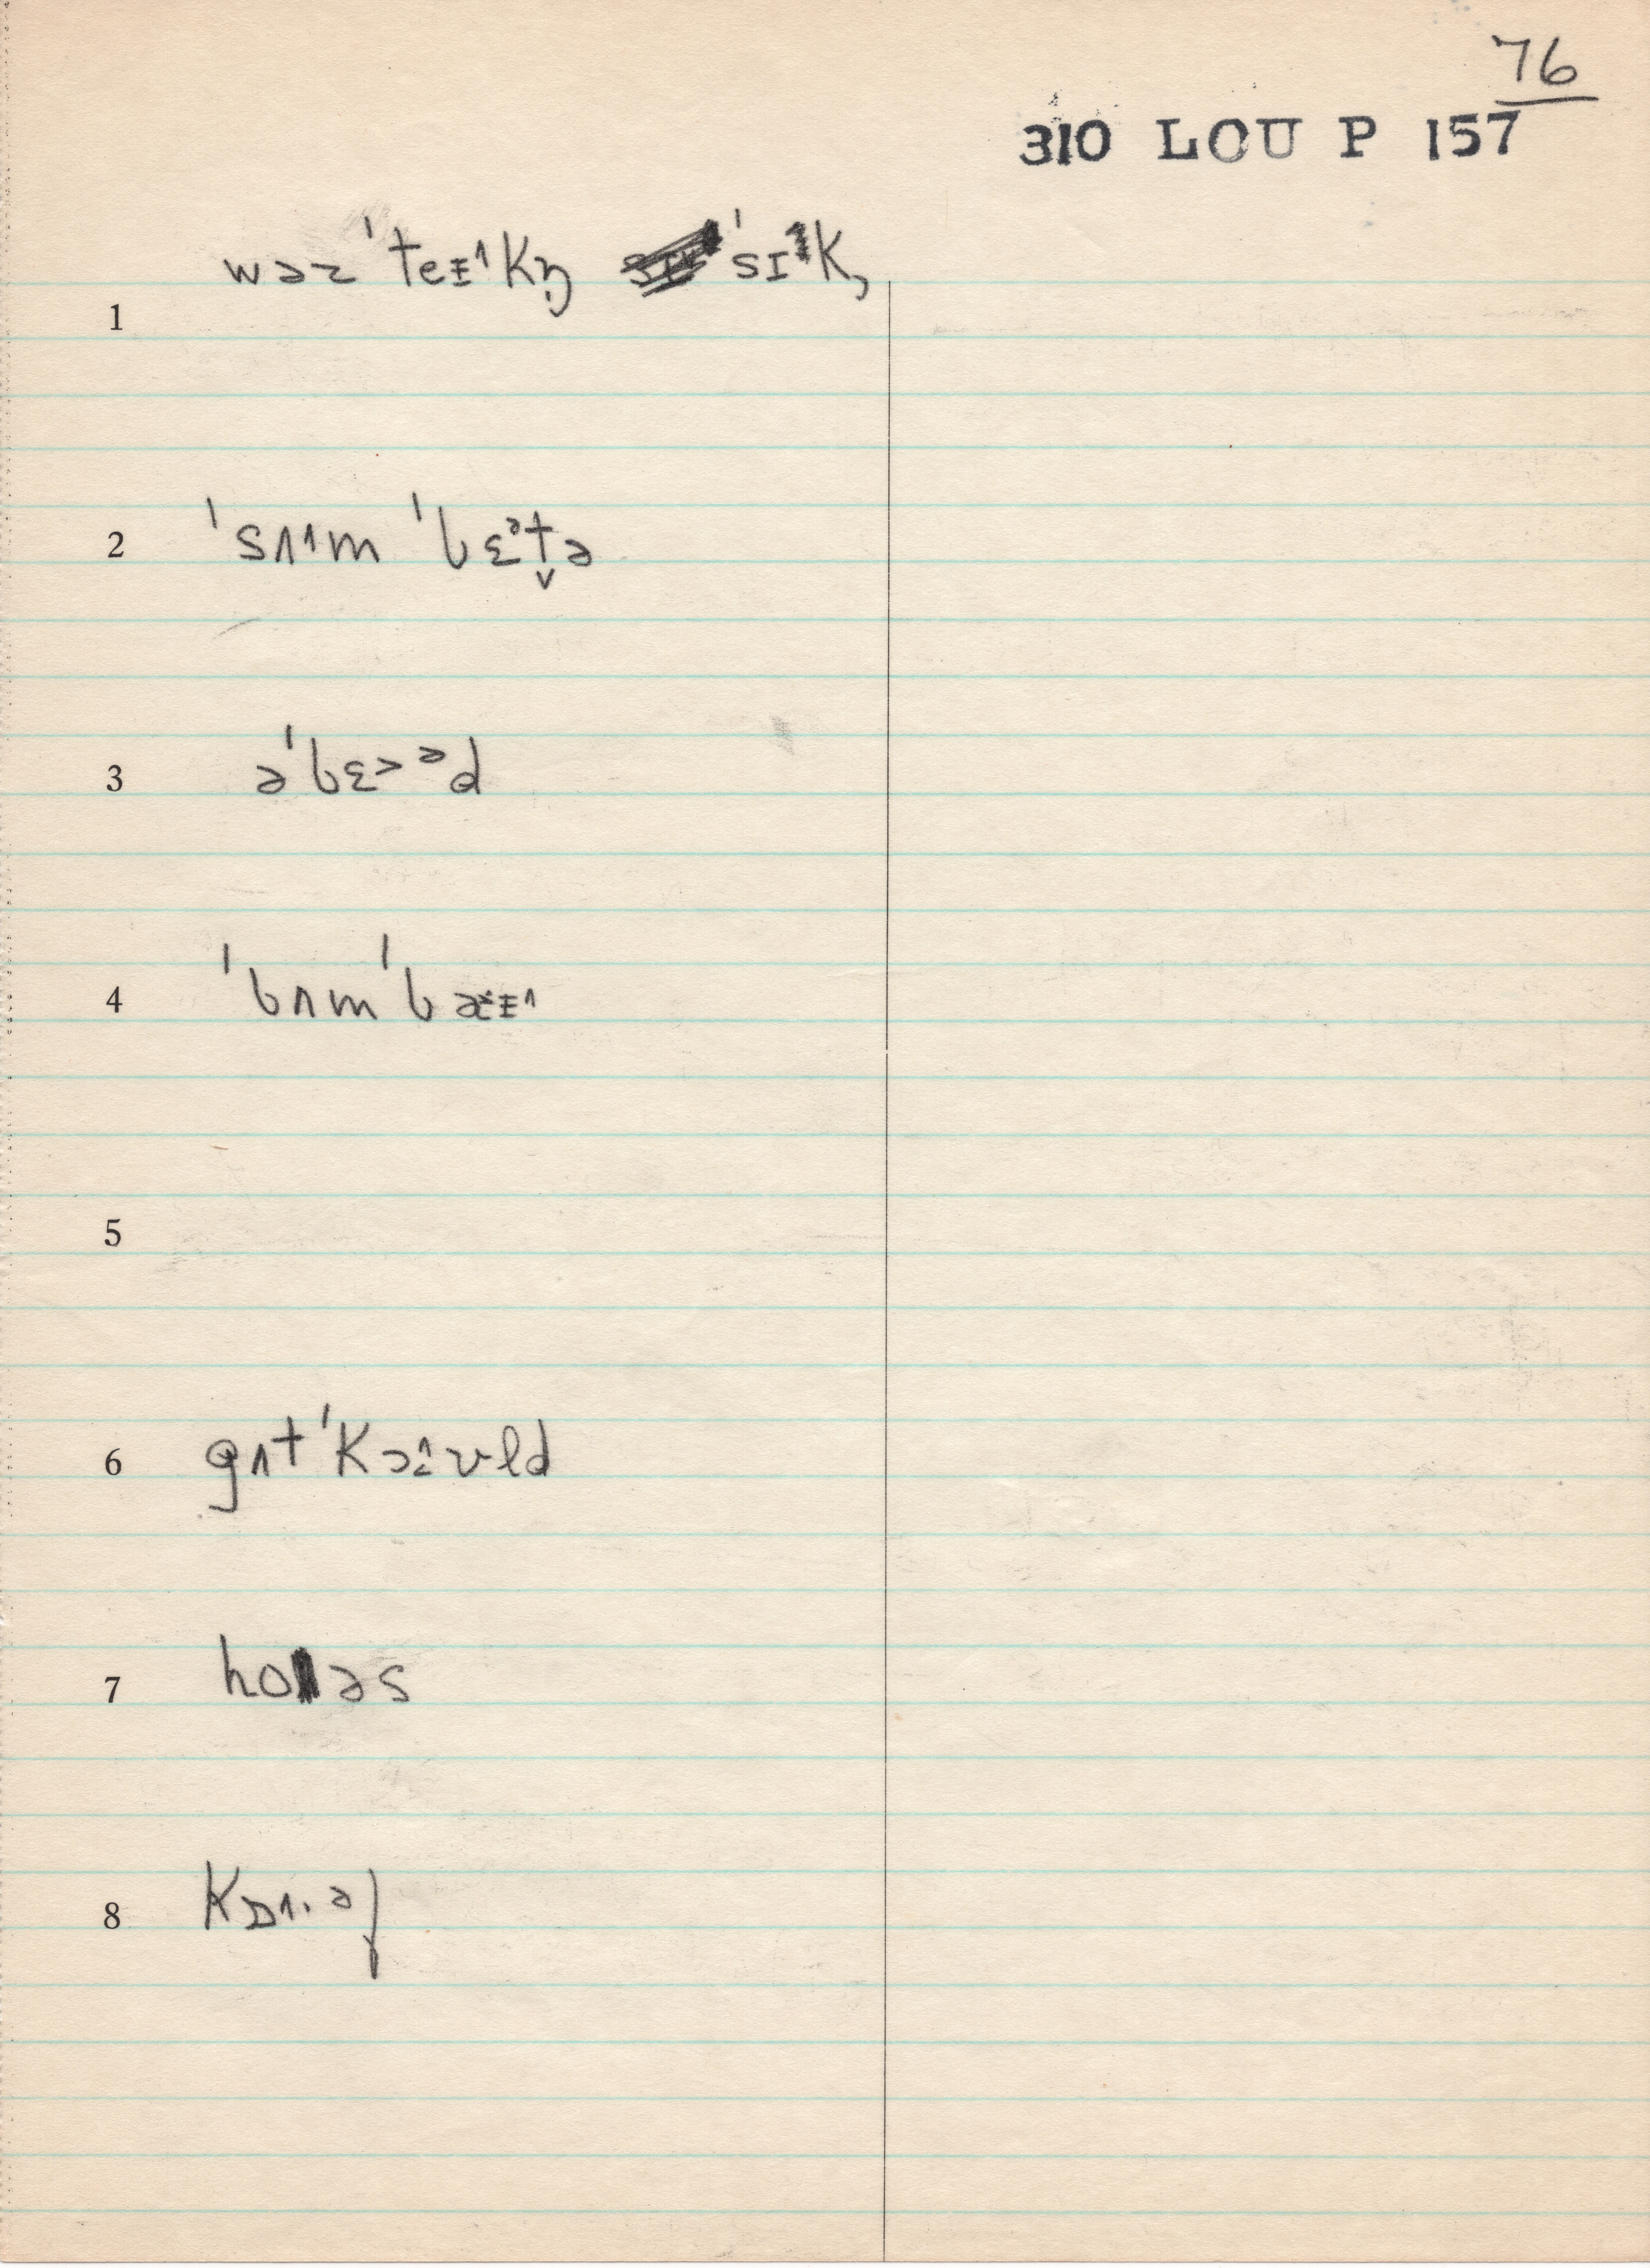 76
310 LOU P 157
1 wəz ˈteɪ˄kŋ̩ ˈsɪ˄k,
2 ˈsʌ˄m ˈbɛᵊt̬ə
3 əˈbɛ˃ᵊd
4 ˈbʌmˈbaɪ˄
5
6 gʌt ˈkɔ˄vl̩d
7 hoəs
8 kɒ˄·ᵊf